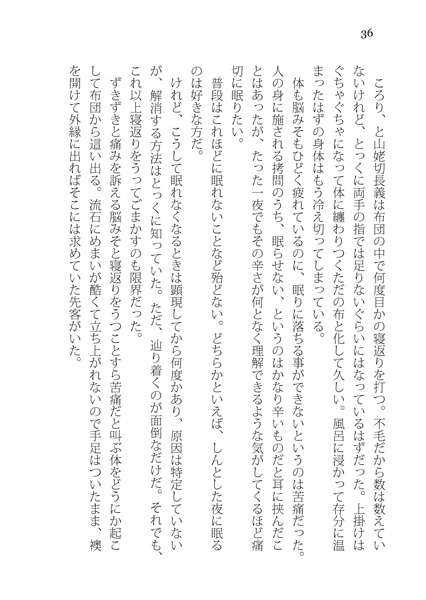 36
ころり、と山姥切長義は布団の中で何度目かの寝返りを打つ。不毛だから数は数えてい
ないけれど、とっくに両手の指では足りないぐらいにはなっているはずだった。上掛けは
ぐちゃぐちゃになって体に纏わりつくただの布と化して久しい。風呂に浸かって存分に温
まったはずの身体はもう冷え切ってしまっている。
体も脳みそもひどく疲れているのに、眠りに落ちる事ができないというのは苦痛だった。
人の身に施される拷問のうち、眠らせない、というのはかなり辛いものだと耳に挟んだこ
とはあったが、たった一夜でもその辛さが何となく理解できるような気がしてくるほど痛
切に眠りたい。
普段はこれほどに眠れないことなど殆どない。どちらかといえば、しんとした夜に眠る
のは好きな方だ。
けれど、こうして眠れなくなるときは顕現してから何度かあり、原因は特定していない
が、解消する方法はとっくに知っていた。ただ、辿り着くのが面倒なだけだ。それでも、
これ以上寝返りをうってごまかすのも限界だった。
ずきずきと痛みを訴える脳みそと寝返りをうつことすら苦痛だと叫ぶ体をどうにか起こ
して布団から這い出る。流石にめまいが酷くて立ち上がれないので手足はついたまま、襖
を開けて外縁に出ればそこには求めていた先客がいた。